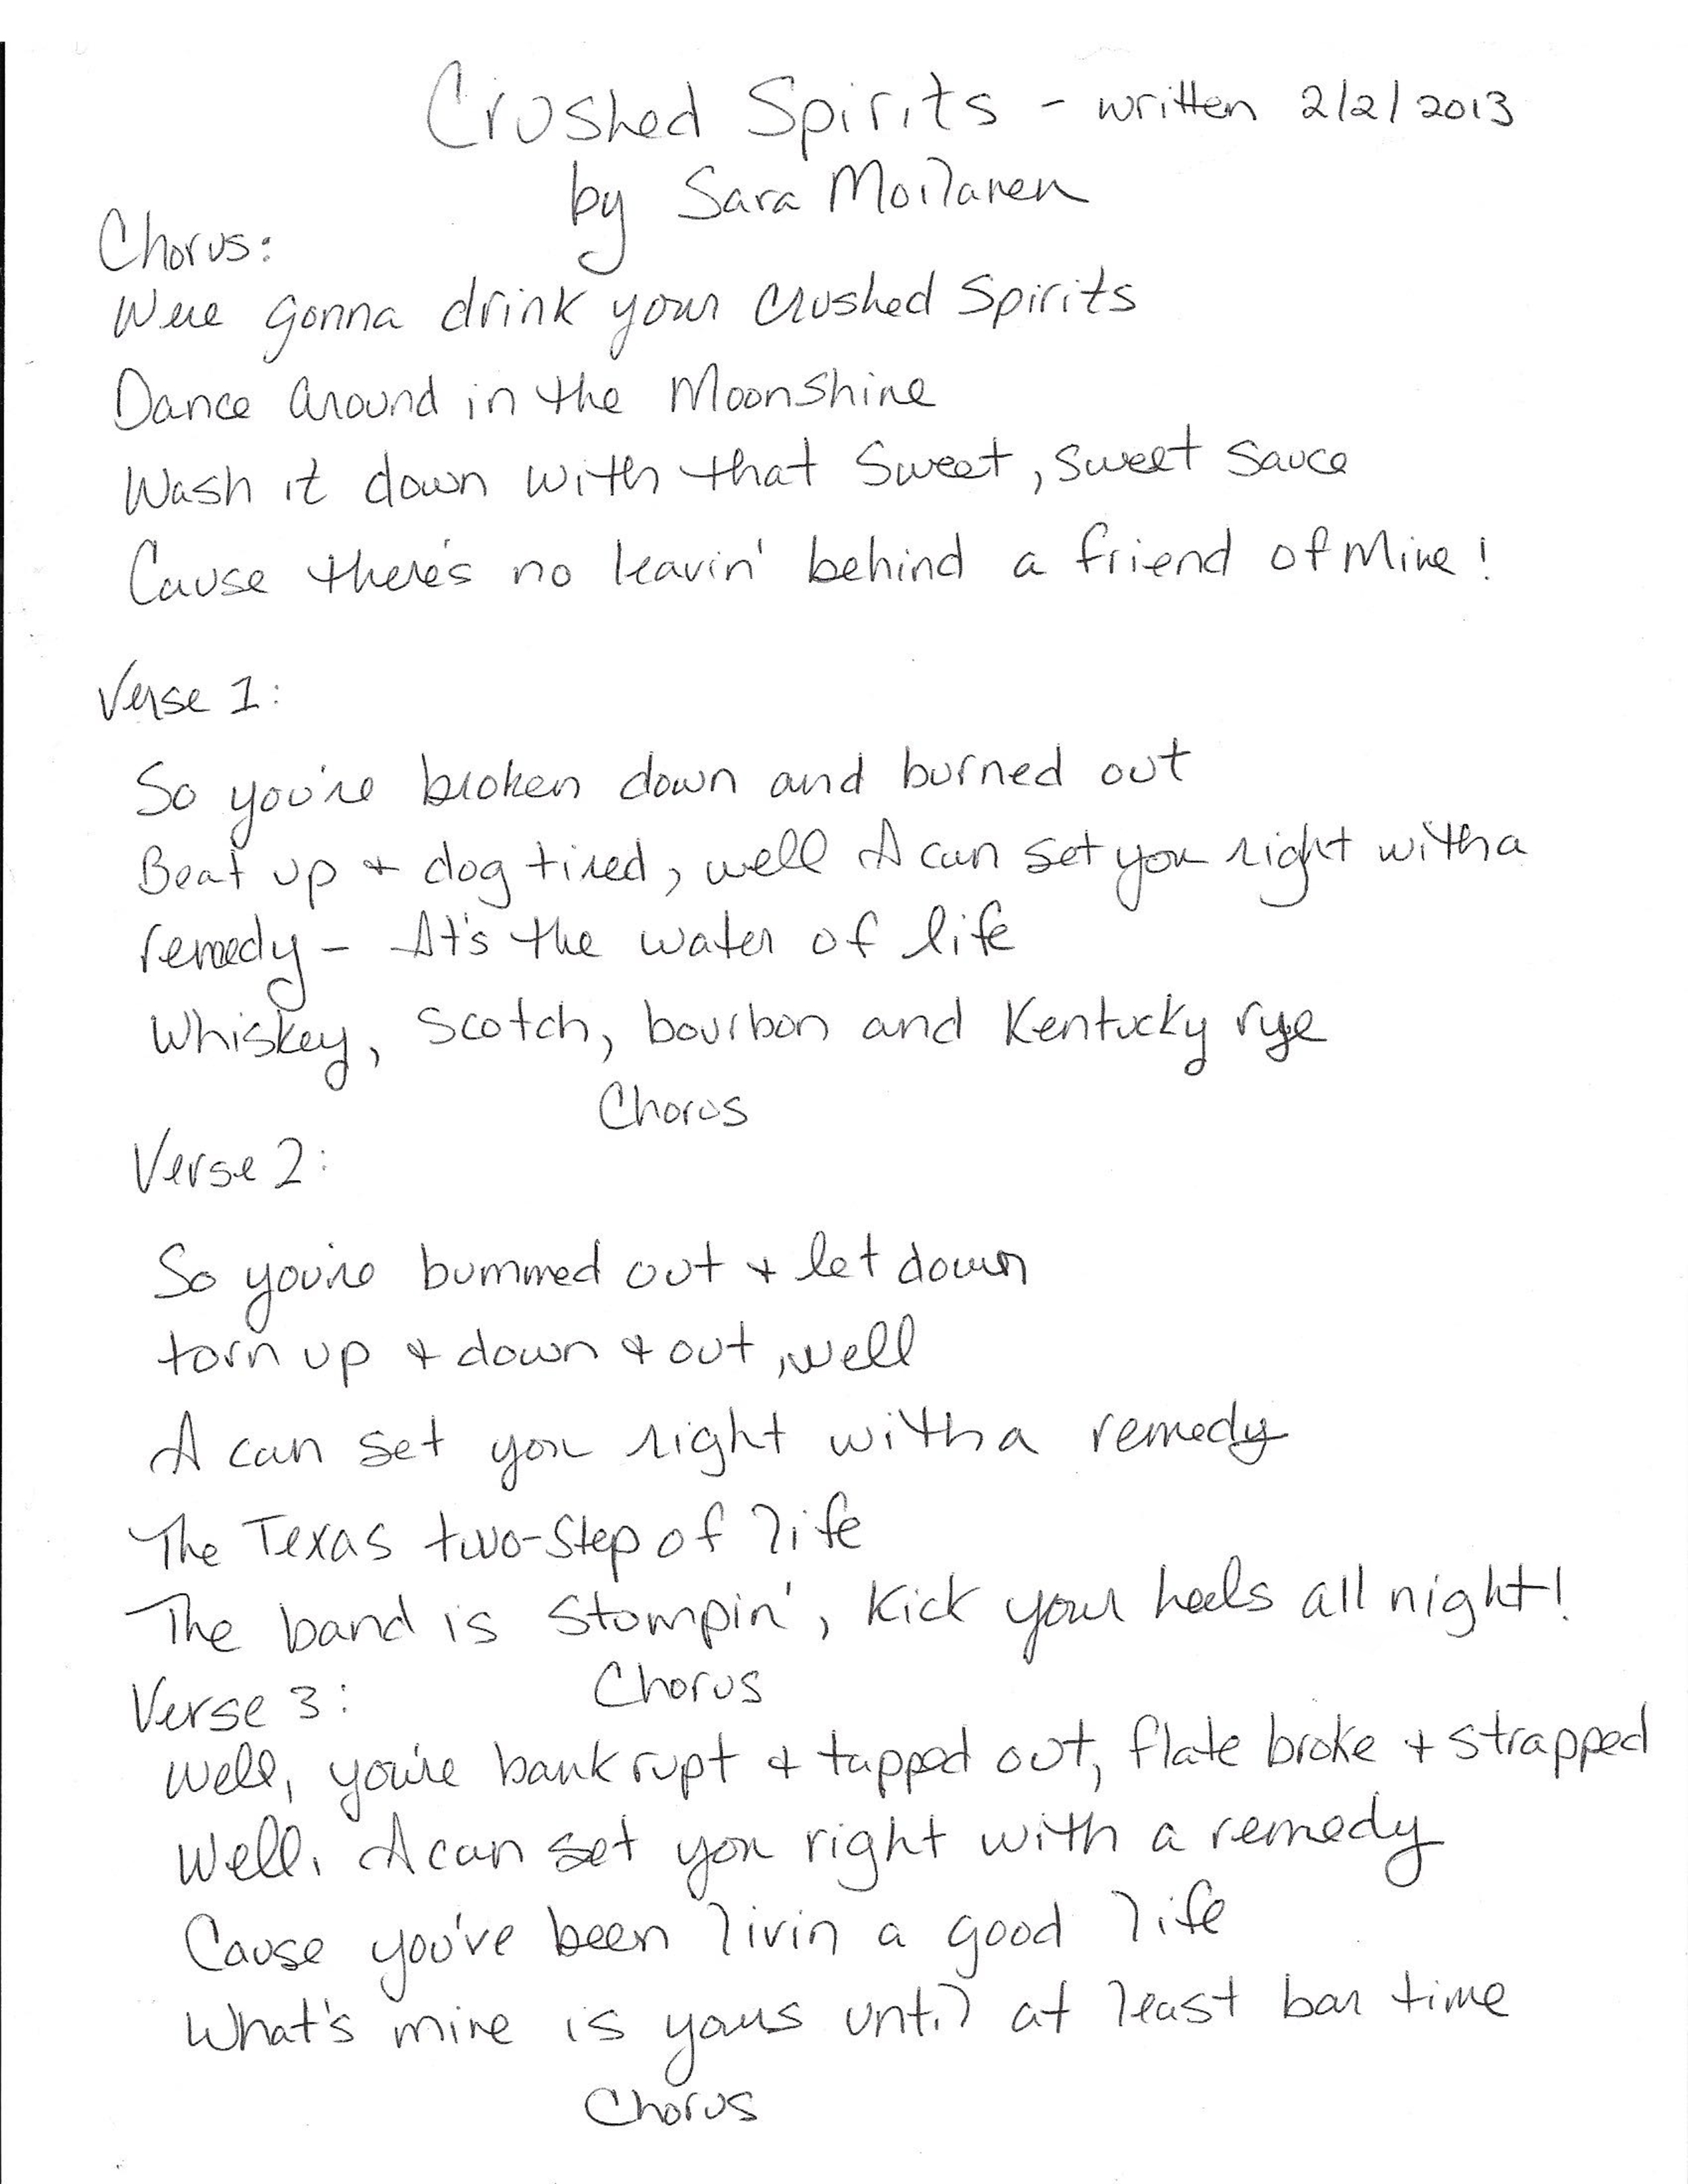 Crushed Spirits - written 2/2/2013
by Sara Moilanen
Chorus:
Were gonna drink your crushed Spirits
Dance around in the Moonshine
Wash it down with that Sweet, sweet sauce
Cause there's no leavin' behind a friend of Mine!
Verse 1:
So you're broken down and burned out
Beat up + dog tired, well I can set you right with a
remedy - It's the water of life
Whiskey, Scotch, bourbon and Kentucky rye
Chorus
Verse 2:
So you're bummed out + let down
torn up + down + out, well
I can set you right with a remedy
The Texas two-Step of life
The band is Stompin', Kick your heels all night!
Chorus
Verse 3:
Well, you're bankrupt + tapped out, flate broke + strapped
Well, I can set you right with a remedy
Cause you've been livin a good life
What's mine is yours until at least bar time
Chorus